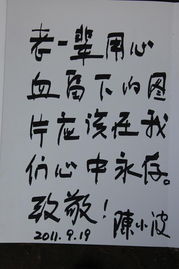 老一辈用心
血留下的图
片应该在我
们心中永存。
致敬！陳小波
2011.9.19